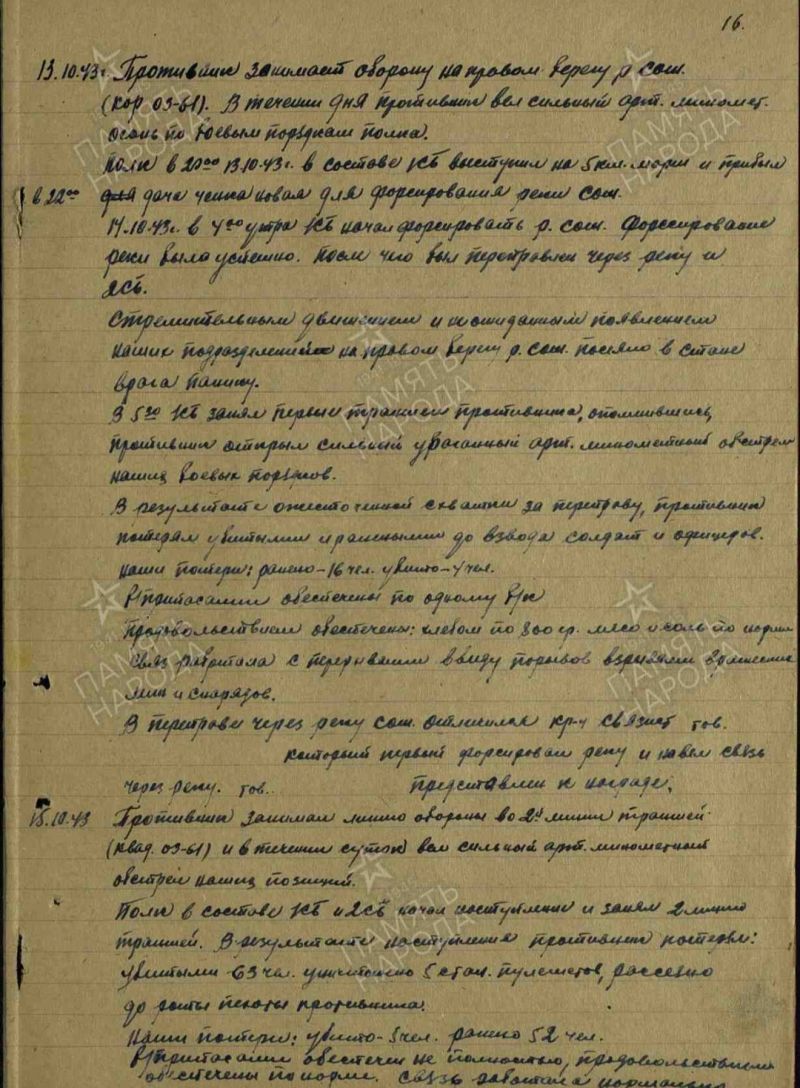 16.
13.10.43г. Противник занимает оборону на правом берегу р. Сож.
(кор 03-61). В течении дня противник вел сильный арт. миномет.
огонь по боевым порядкам полка.
Полк в 20⁰⁰ 13.10.43г. в составе 1СБ выступил на 5 км. марш и прибыл
в 22⁰⁰ дача для форсирования реки Сож.
14.10.43г. в 4⁰⁰ утра 1СБ начал форсировать р. Сож. Форсирование
реки была успешно. После чего был переправлен через реку и
2СБ.
Стремительным движением и неожиданным появлением
наших подразделений на правом берегу р. Сож. посеяло в стане
врага панику.
В 5³⁰ 1СБ занял первые траншеи противника, опомнившись,
противник открыл сильный ураганный арт. минометный обстрел
наших боевых порядков.
В результате ожесточенной схватки за переправу, противник
потерял убитыми и ранеными до взвода солдат и офицеров.
Наши потери: ранено-16 чел. убито-4 чел.
Б/припасами обеспечены по одному б/к
Продовольствием обеспечены: хлебом по 800 гр. мясо и соль по норме
Связь работала с перерывами ввиду порывов взрывами вражеских
мин и снарядов.
В переправе через реку Сож. отличился кр-ц связист тов.
который первый форсировал реку и навел связь
через реку. тов. представлен к награде.
15.10.43 Противник занимал линию обороны во 2й линии траншей
(квад. 03-61) и в течении суток вел сильный арт. минометный
обстрел наших позиций.
Полк в составе 1СБ и 2СБ начал наступление и занял 2 линию
траншей. В результате наступления противник потерял:
убитыми 63 чел. уничтожено 5 стан. пулеметов, рассеяно
до роты пехоты противника.
Наши потери: убито-5 чел. ранено 52 чел.
Б/припасами обеспечен не полностью, продовольствием
обеспечены по норме. Связь работала нормально
ПАМЯТЬ НАРОДА